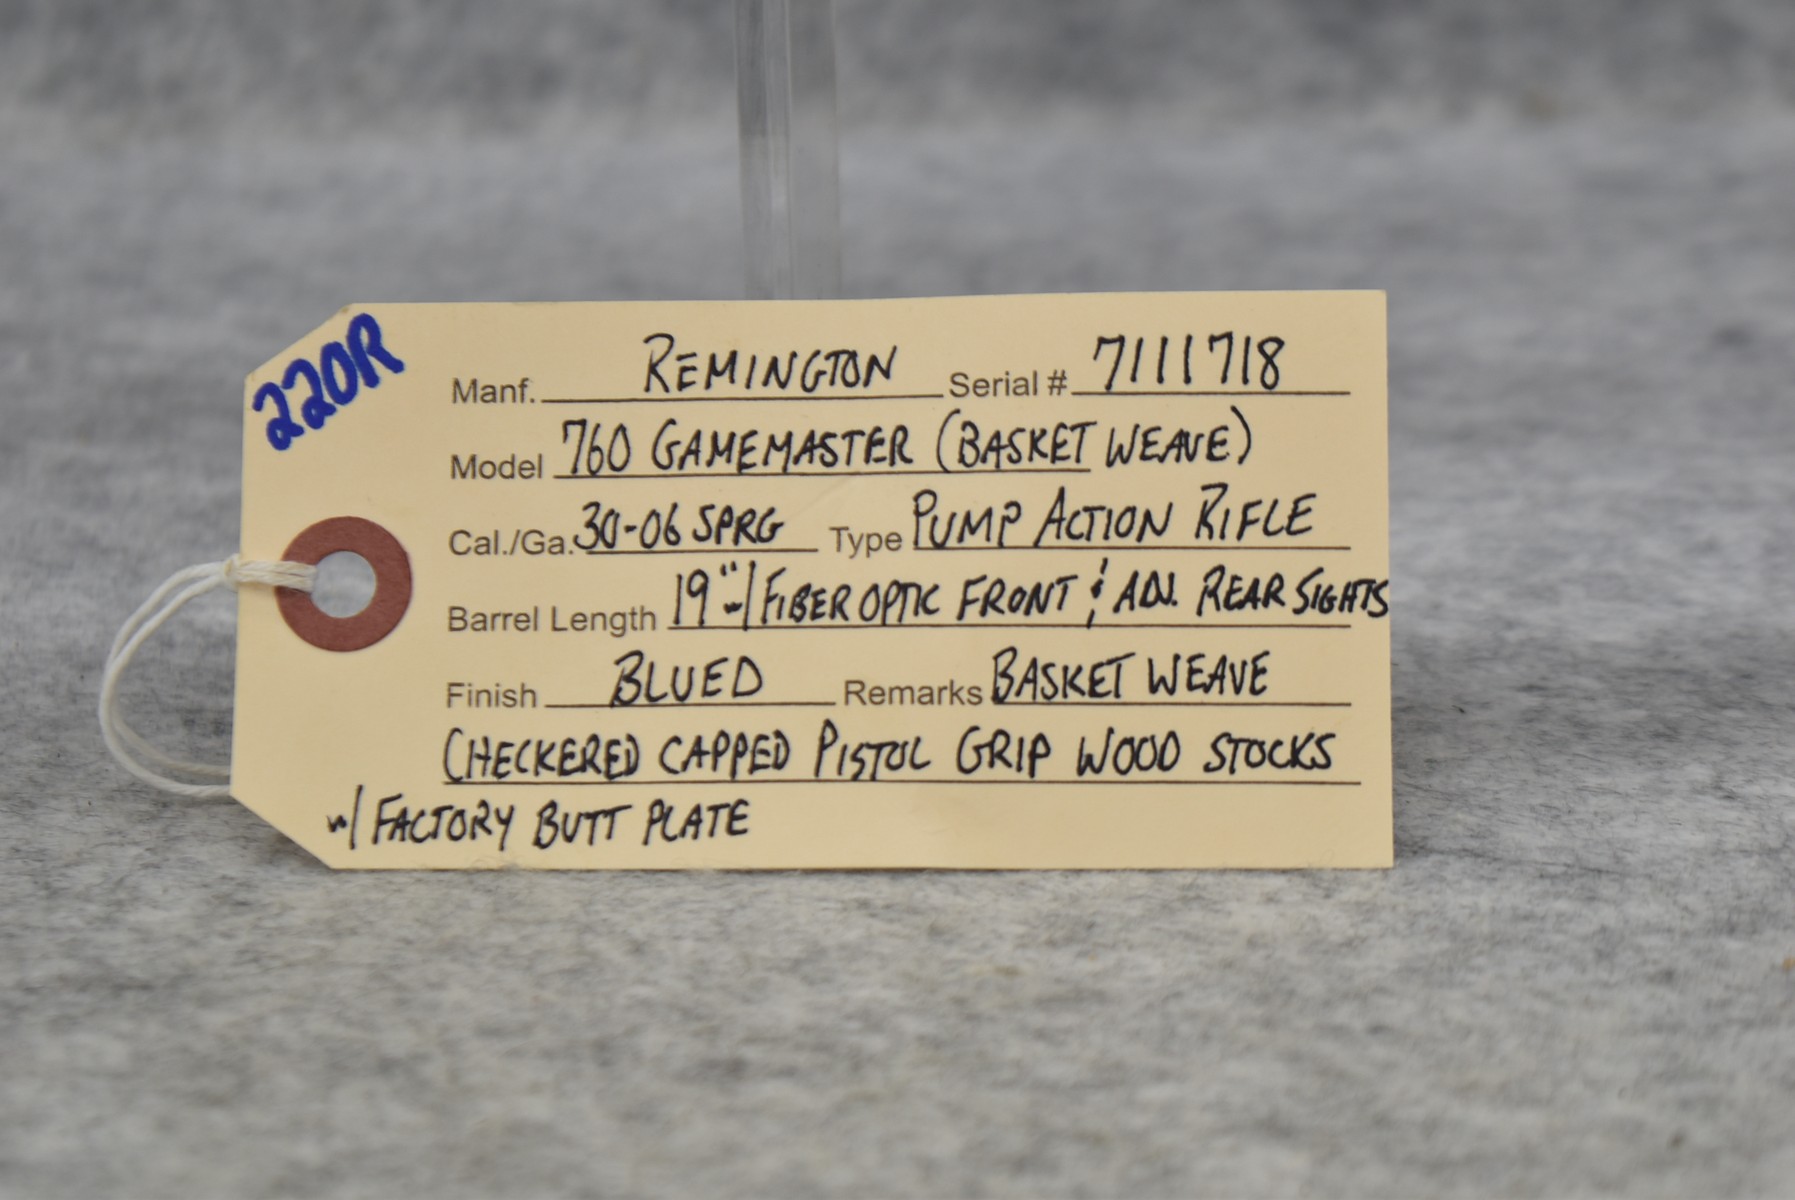 220R
Manf. REMINGTON Serial # 7111718
Model 760 GAMEMASTER (BASKET WEAVE)
Cal./Ga. 30-06 SPRG Type PUMP ACTION RIFLE
Barrel Length 19" w/ FIBER OPTIC FRONT & ADJ. REAR SIGHTS
Finish BLUED Remarks BASKET WEAVE
CHECKERED CAPPED PISTOL GRIP WOOD STOCKS
w/ FACTORY BUTT PLATE